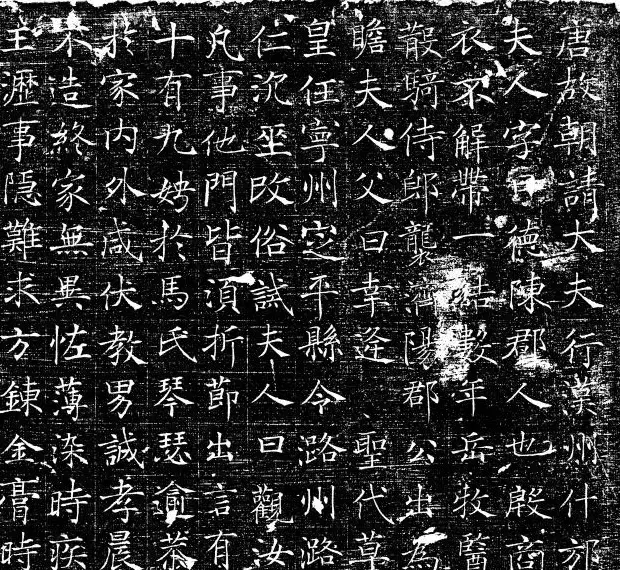 唐故朝請大夫行漢州什邡
夫人字德陳郡人也殷商
衣不解帶一結數年岳牧醫
散騎侍郎襲濟陽郡公出為
瞻夫人父曰幸逢聖代草
皇任寧州定平縣令潞州潞
仁沉巫改俗試夫人曰觀汝
凡事他門皆須折節出言有
十有九娉於馬氏琴瑟逾恭
於家內外咸伏教男誠孝晨
不造終家無異恠薄染時疾
主瀝事隱難求方鍊金膏時